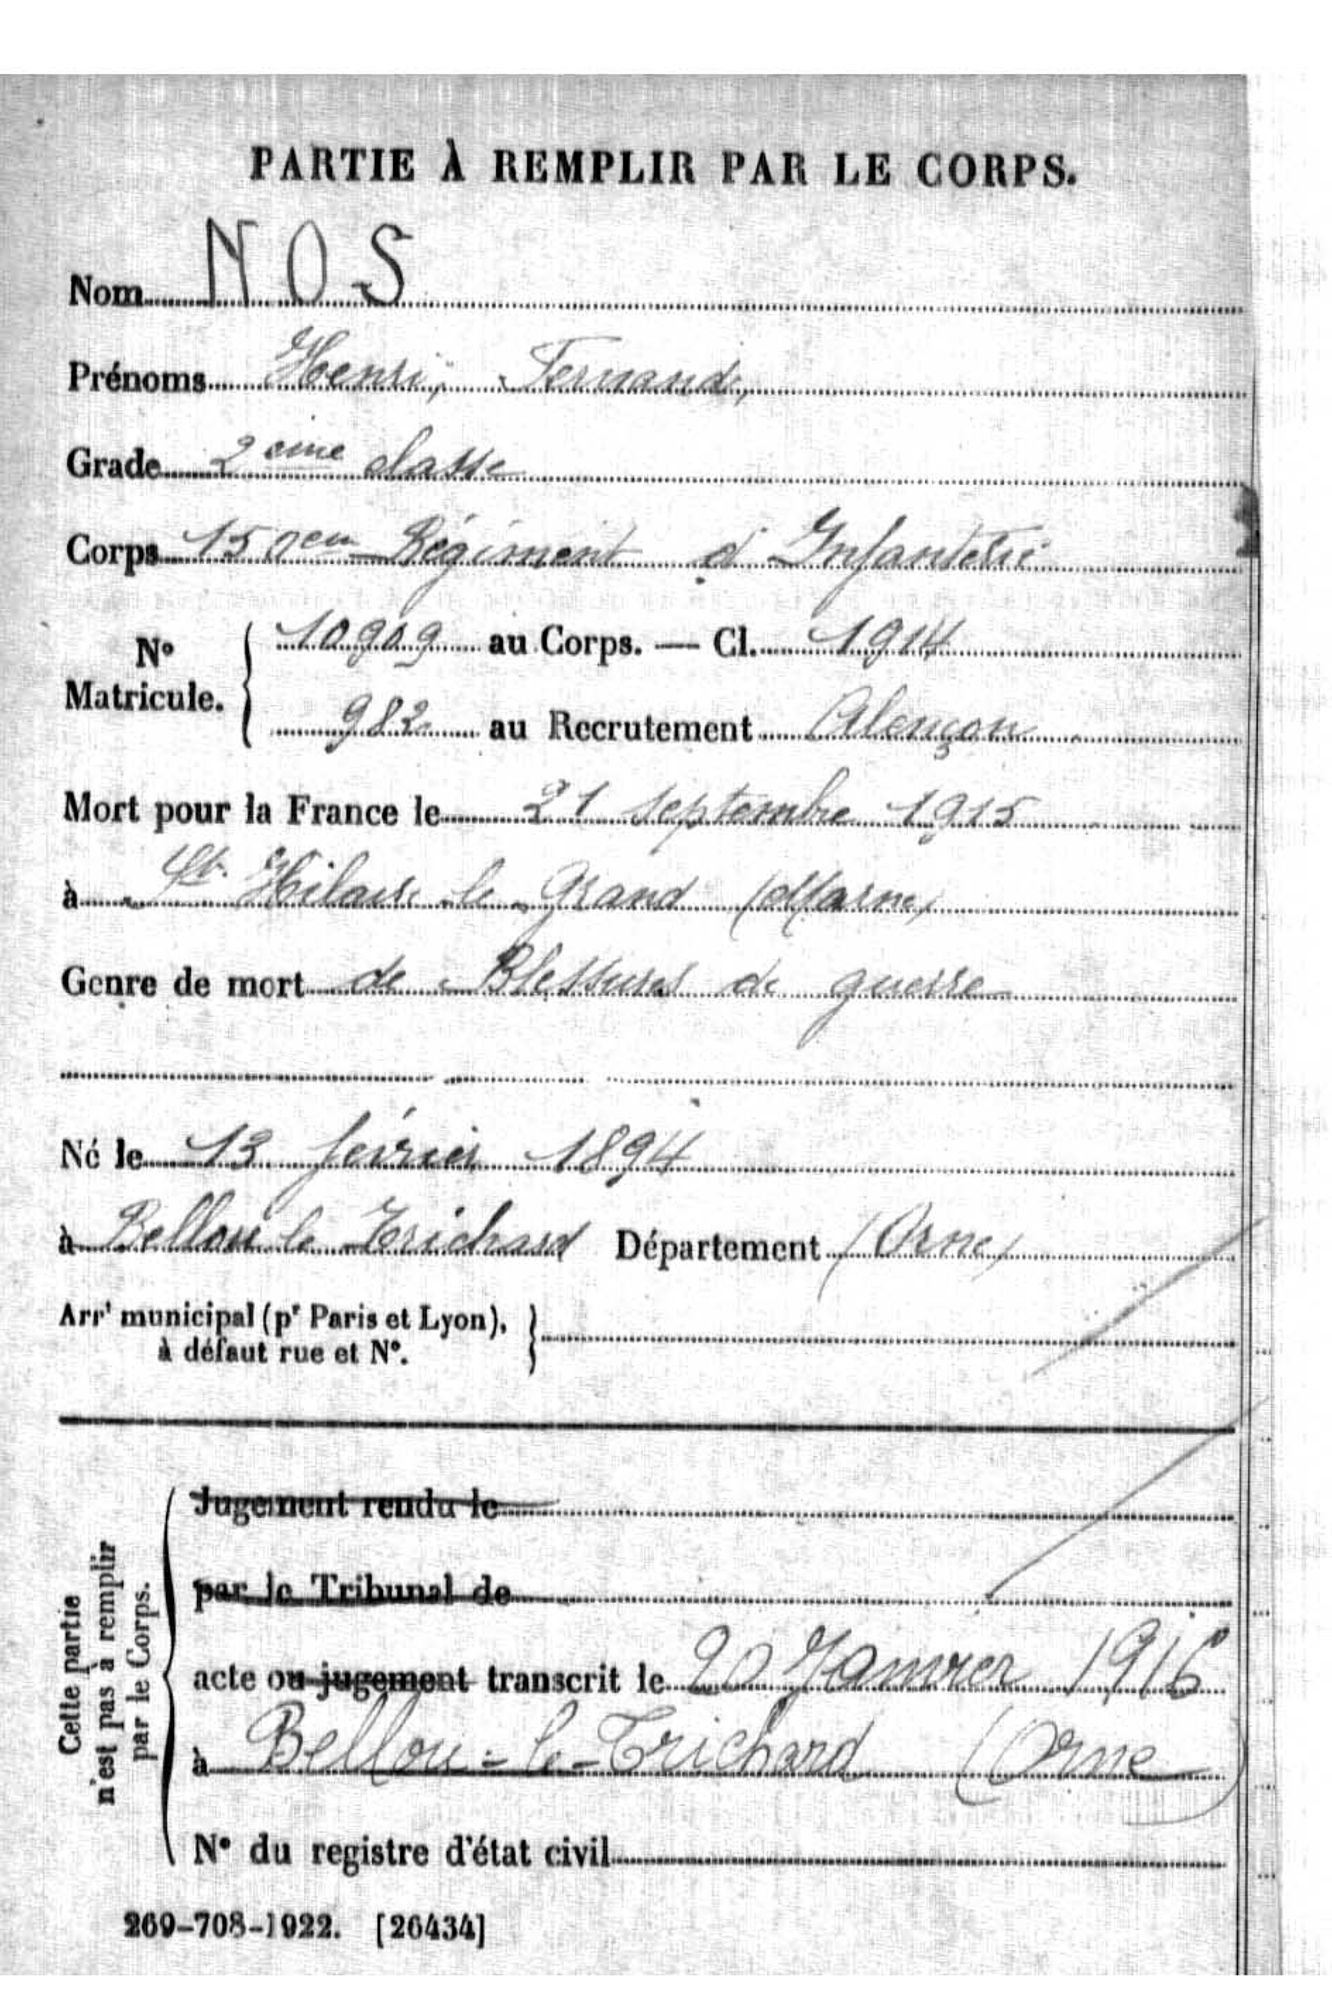 PARTIE À REMPLIR PAR LE CORPS.
Nom NOS
Prénoms Henri, Fernand,
Grade 2eme classe
Corps 150em Régiment d'Infanterie
N° Matricule. 10909 au Corps. — Cl. 1914
982 au Recrutement Alençon
Mort pour la France le 21 septembre 1915
à St. Hilaire le Grand (Marne)
Genre de mort de Blessures de guerre
Né le 13 février 1894
à Bellou le Trichard Département (Orne)
Arrt municipal (pr Paris et Lyon),
à défaut rue et N°.
Cette partie
n'est pas à remplir
par le Corps.
Jugement rendu le
par le Tribunal de
acte ou jugement transcrit le 20 Janvier 1916
à Bellou-le-Trichard (Orne)
N° du registre d'état civil
269-708-1922. [26434]